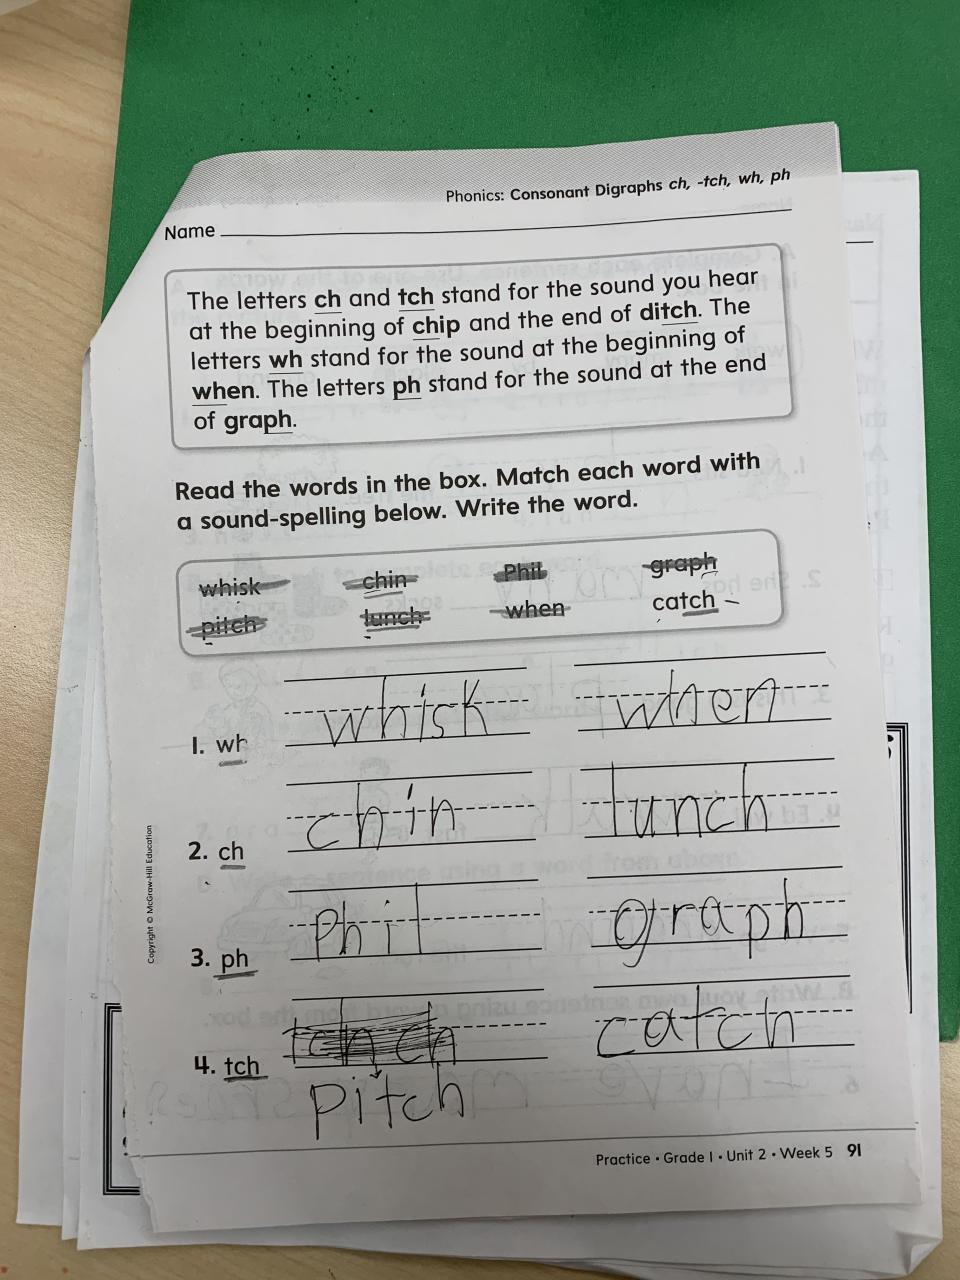 Phonics: Consonant Digraphs ch, -tch, wh, ph
Name
The letters ch and tch stand for the sound you hear
at the beginning of chip and the end of ditch. The
letters wh stand for the sound at the beginning of
when. The letters ph stand for the sound at the end
of graph.
Read the words in the box. Match each word with
a sound-spelling below. Write the word.
whisk chin Phil graph
pitch lunch when catch
1. wh whisk when
2. ch chin lunch
3. ph Phil graph
4. tch catch
pitch
Copyright © McGraw-Hill Education
Practice • Grade 1 • Unit 2 • Week 5 91